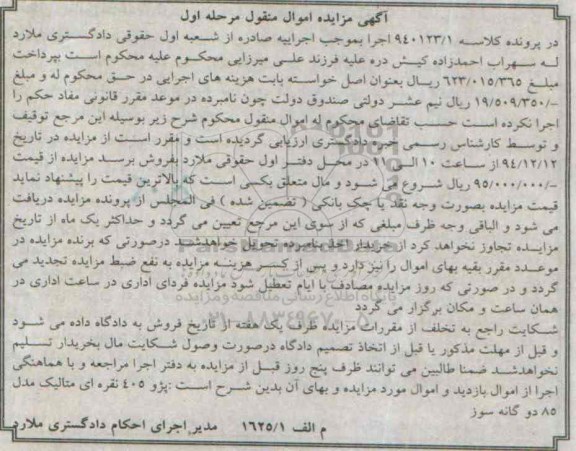 آگهی مزایده اموال منقول مرحله اول
در پرونده کلاسه ۹۴۰۱۲۳/۱ اجرا بموجب اجراییه صادره از شعبه اول حقوقی دادگستری ملارد
له سهراب احمدزاده کیش دره علیه فرزند علی میرزایی محکوم علیه محکوم است بپرداخت
مبلغ ۶۲۳/۰۱۵/۳۶۵ ریال بعنوان اصل خواسته بابت هزینه های اجرایی در حق محکوم له و مبلغ
۱۹/۵۰۹/۳۵۰/- ریال نیم عشر دولتی صندوق دولت چون نامبرده در موعد مقرر قانونی مفاد حکم را
اجرا نکرده است حسب تقاضای محکوم له اموال منقول محکوم شرح زیر بوسیله این مرجع توقیف
و توسط کارشناس رسمی خبره دادگستری ارزیابی گردیده است و مقرر است از مزایده در تاریخ
۹۴/۱۲/۱۲ از ساعت ۱۰ الی ۱۱ در محل دفتر اول حقوقی ملارد بفروش برسد مزایده از قیمت
۹۵/۰۰۰/۰۰۰/- ریال شروع می شود و مال متعلق بکسی است که بالاترین قیمت را پیشنهاد نماید
قیمت مزایده بصورت وجه نقد یا چک بانکی ( تضمین شده ) فی المجلس از پرونده مزایده دریافت
می شود و الباقی وجه ظرف مبلغی که از سوی این مرجع تعیین می گردد و حداکثر یک ماه از تاریخ
مزایده تجاوز نخواهد کرد از خریدار اخذ بنامبرده تحویل خواهدشد درصورتی که برنده مزایده در
موعد مقرر بقیه بهای اموال را نپردازد و پس از کسر هزینه مزایده به نفع ضبط مزایده تجدید می
گردد و در صورتی که روز مزایده مصادف با ایام تعطیل شود مزایده فردای اداری در ساعت اداری در
همان ساعت و مکان برگزار می گردد
شکایت راجع به تخلف از مقررات مزایده ظرف یک هفته از تاریخ فروش به دادگاه داده می شود
و قبل از مهلت مذکور یا قبل از اتخاذ تصمیم دادگاه درصورت وصول شکایت مال بخریدار تسلیم
نخواهدشد ضمنا طالبین می توانند ظرف پنج روز قبل از مزایده به دفتر اجرا مراجعه و با هماهنگی
اجرا از اموال بازدید و اموال مورد مزایده و بهای آن بدین شرح است :پژو ۴۰۵ نقره ای متالیک مدل
۸۵ دو گانه سوز
م الف ۱۶۲۵/۱ مدیر اجرای احکام دادگستری ملارد
پایگاه اطلاع رسانی مناقصه و مزایده